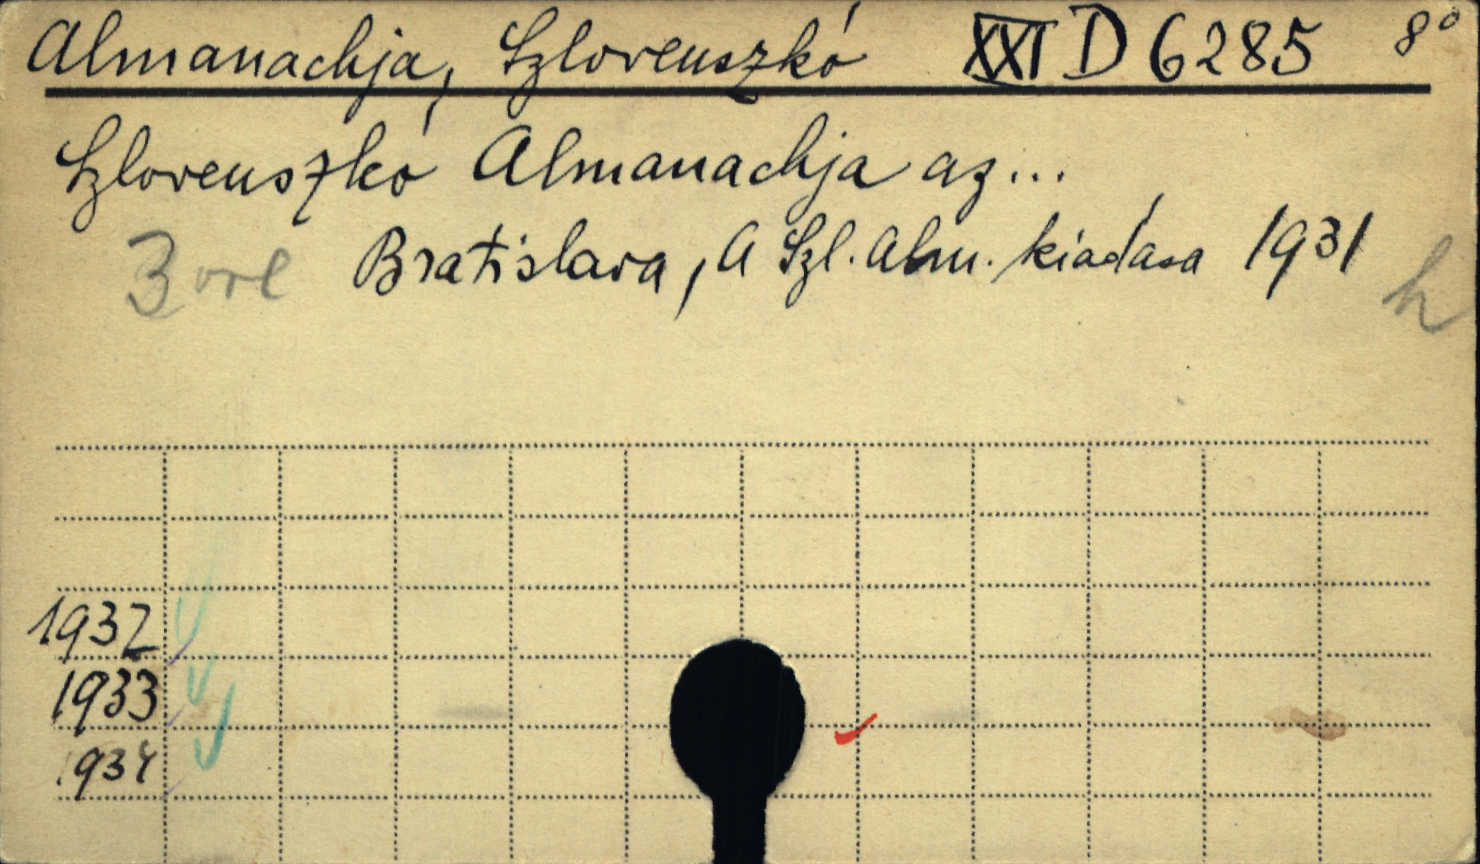 Almanachja, Szlovenszkó XXI D 6285 8°
Szlovenszkó Almanachja az...
Bratislava, A Szl. Alm. kiadása 1931
3 h
1932
1933
1934